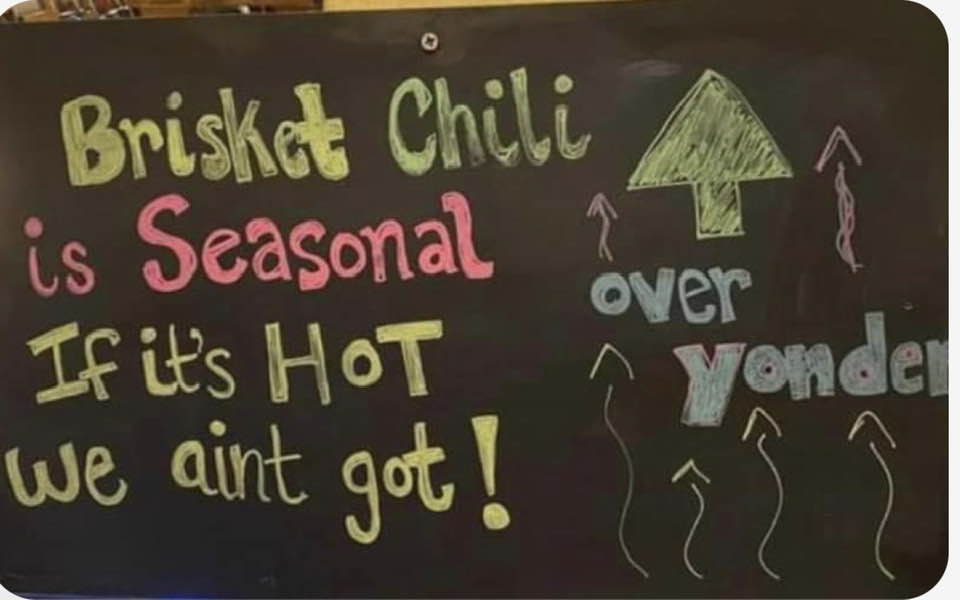 Brisket Chili
is Seasonal
If it's HOT
we aint got!
over
yonder